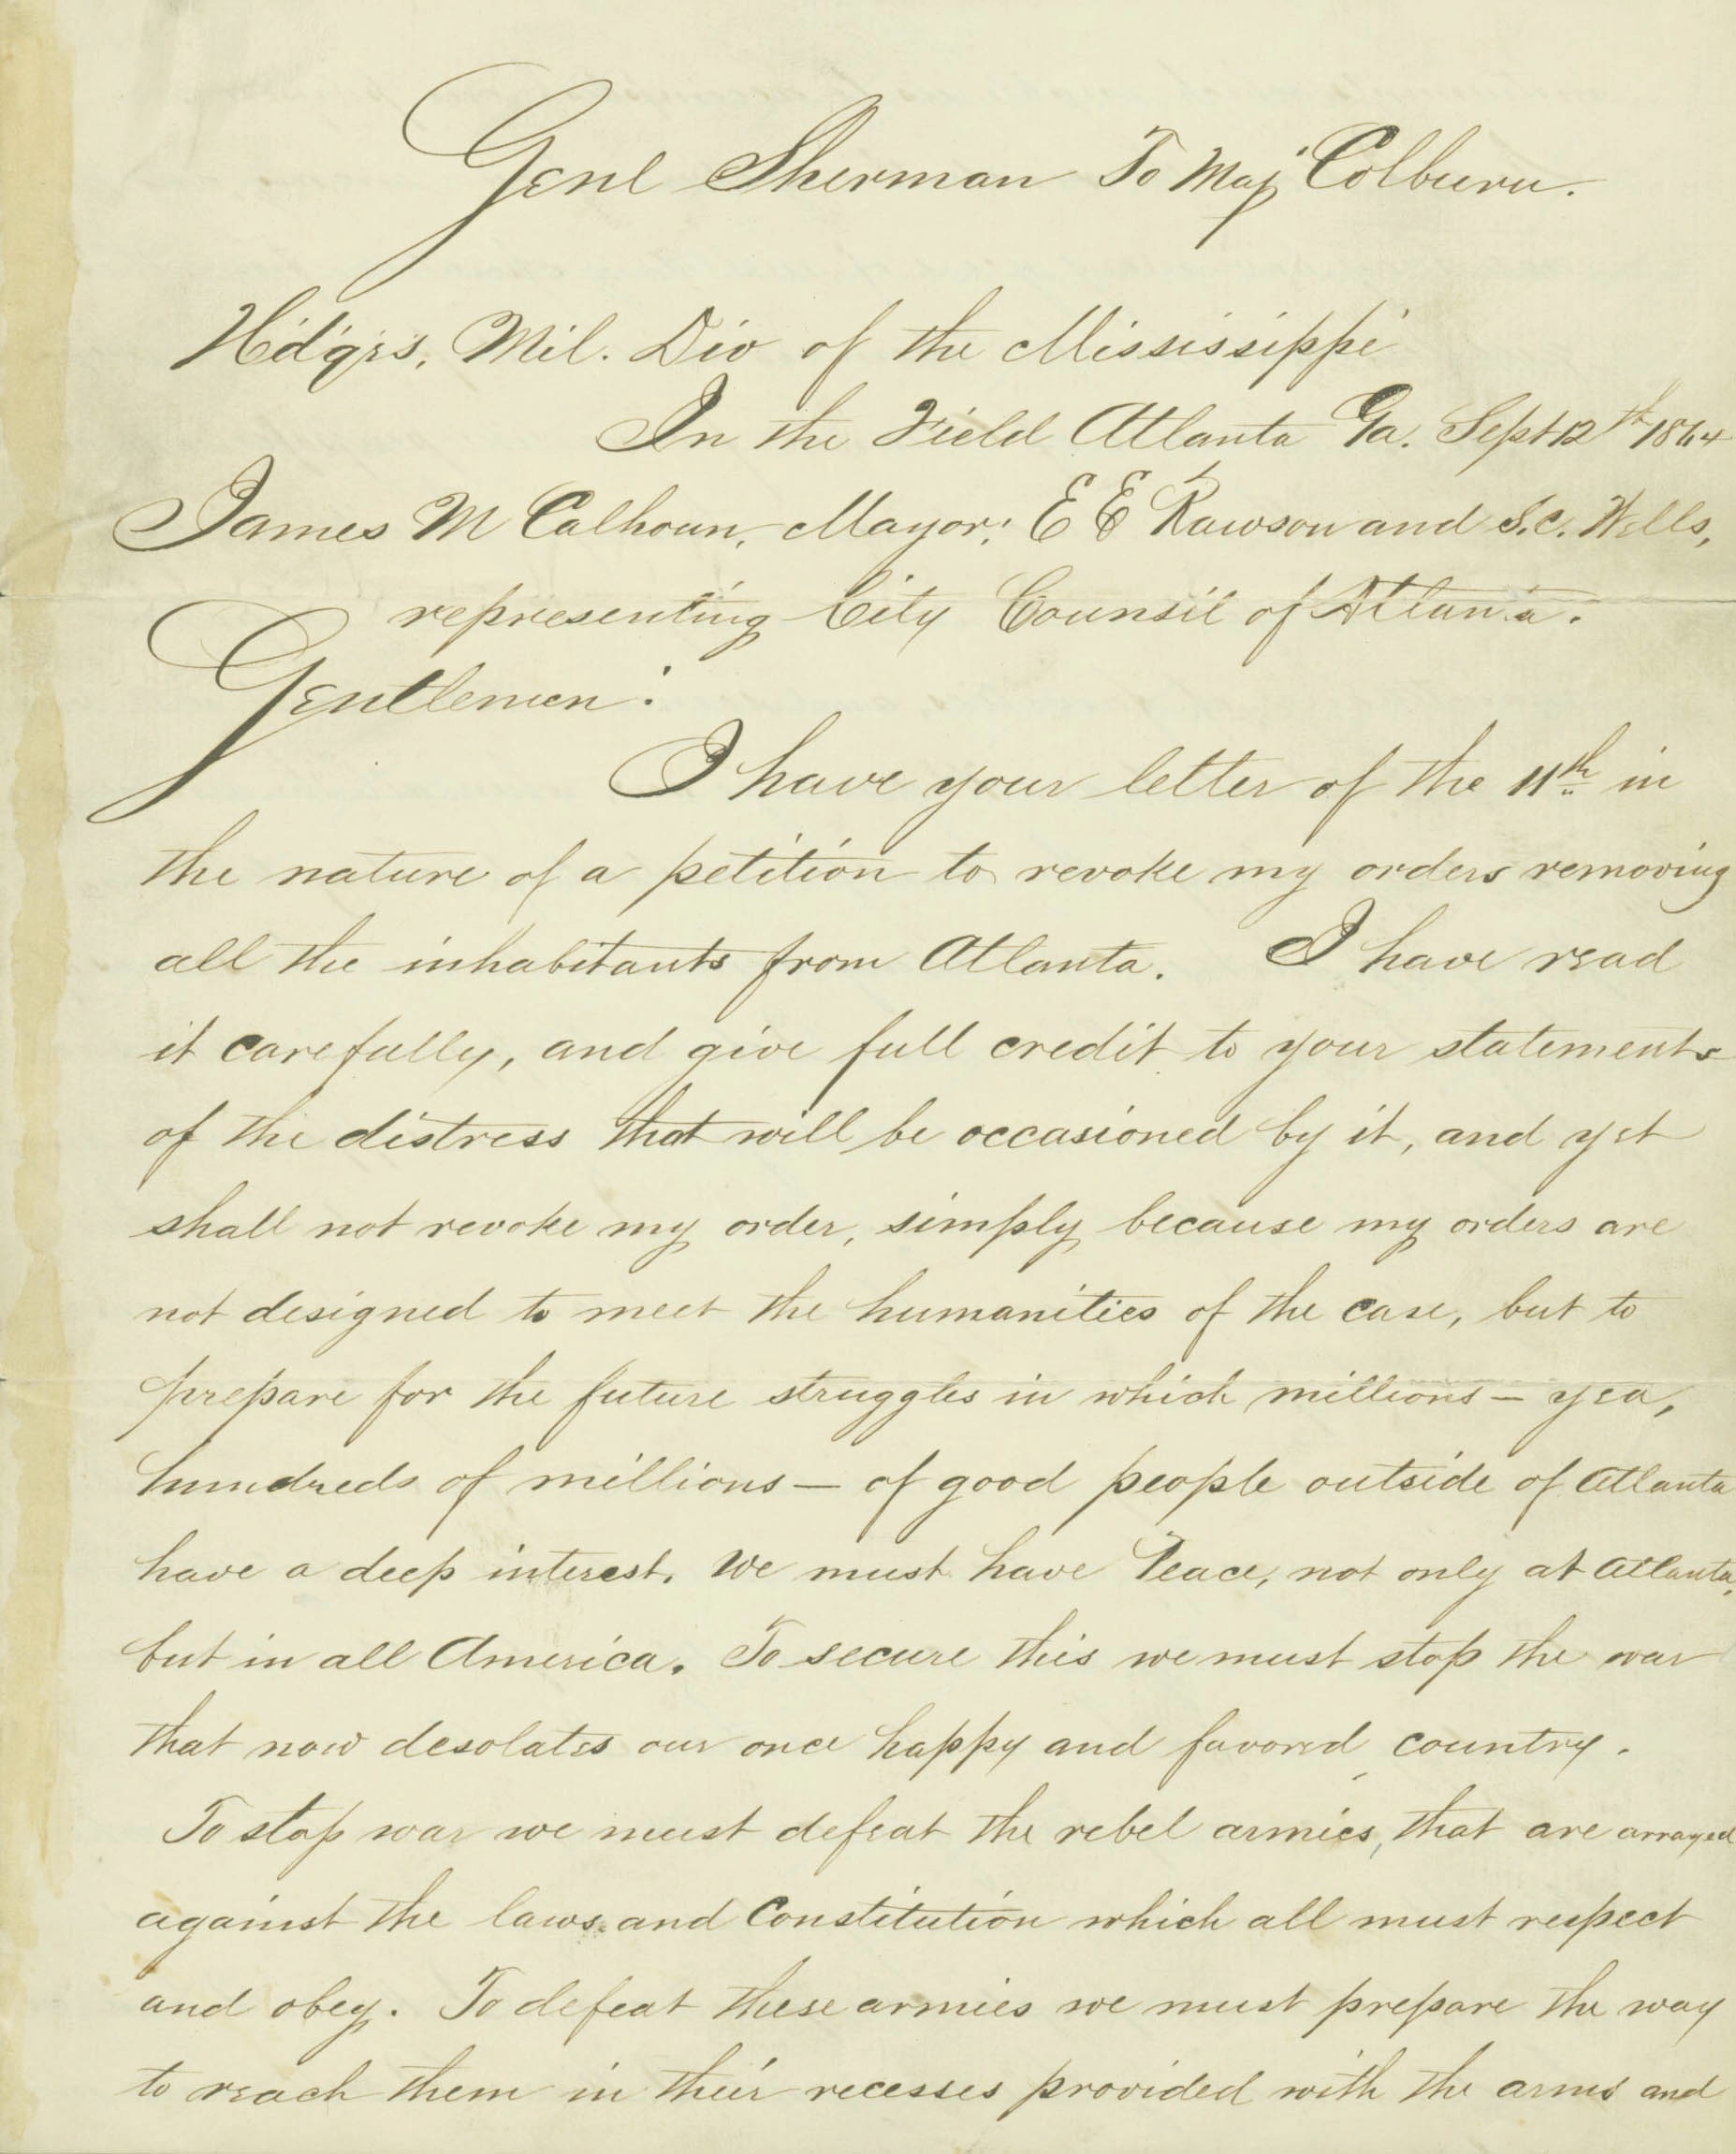 Genl Sherman To Maj Colburn.
Hdqrs, Mil. Div of the Mississippi
In the Field Atlanta Ga. Sept 12th 1864
James M Calhoun, Mayor; E E Rawson and S.C. Wells,
representing City Counsil of Atlanta.
Gentlemen:
I have your letter of the 11th in
the nature of a petition to revoke my orders removing
all the inhabitants from Atlanta. I have read
it carefully, and give full credit to your statements
of the distress that will be occasioned by it, and yet
shall not revoke my order, simply because my orders are
not designed to meet the humanities of the case, but to
prepare for the future struggles in which millions — yea,
hundreds of millions — of good people outside of Atlanta
have a deep interest. We must have Peace, not only at Atlanta,
but in all America. To secure this we must stop the war
that now desolates our once happy and favored country.
To stop war we must defeat the rebel armies, that are arrayed
against the laws and Constitution which all must respect
and obey. To defeat these armies we must prepare the way
to reach them in their recesses provided with the arms and